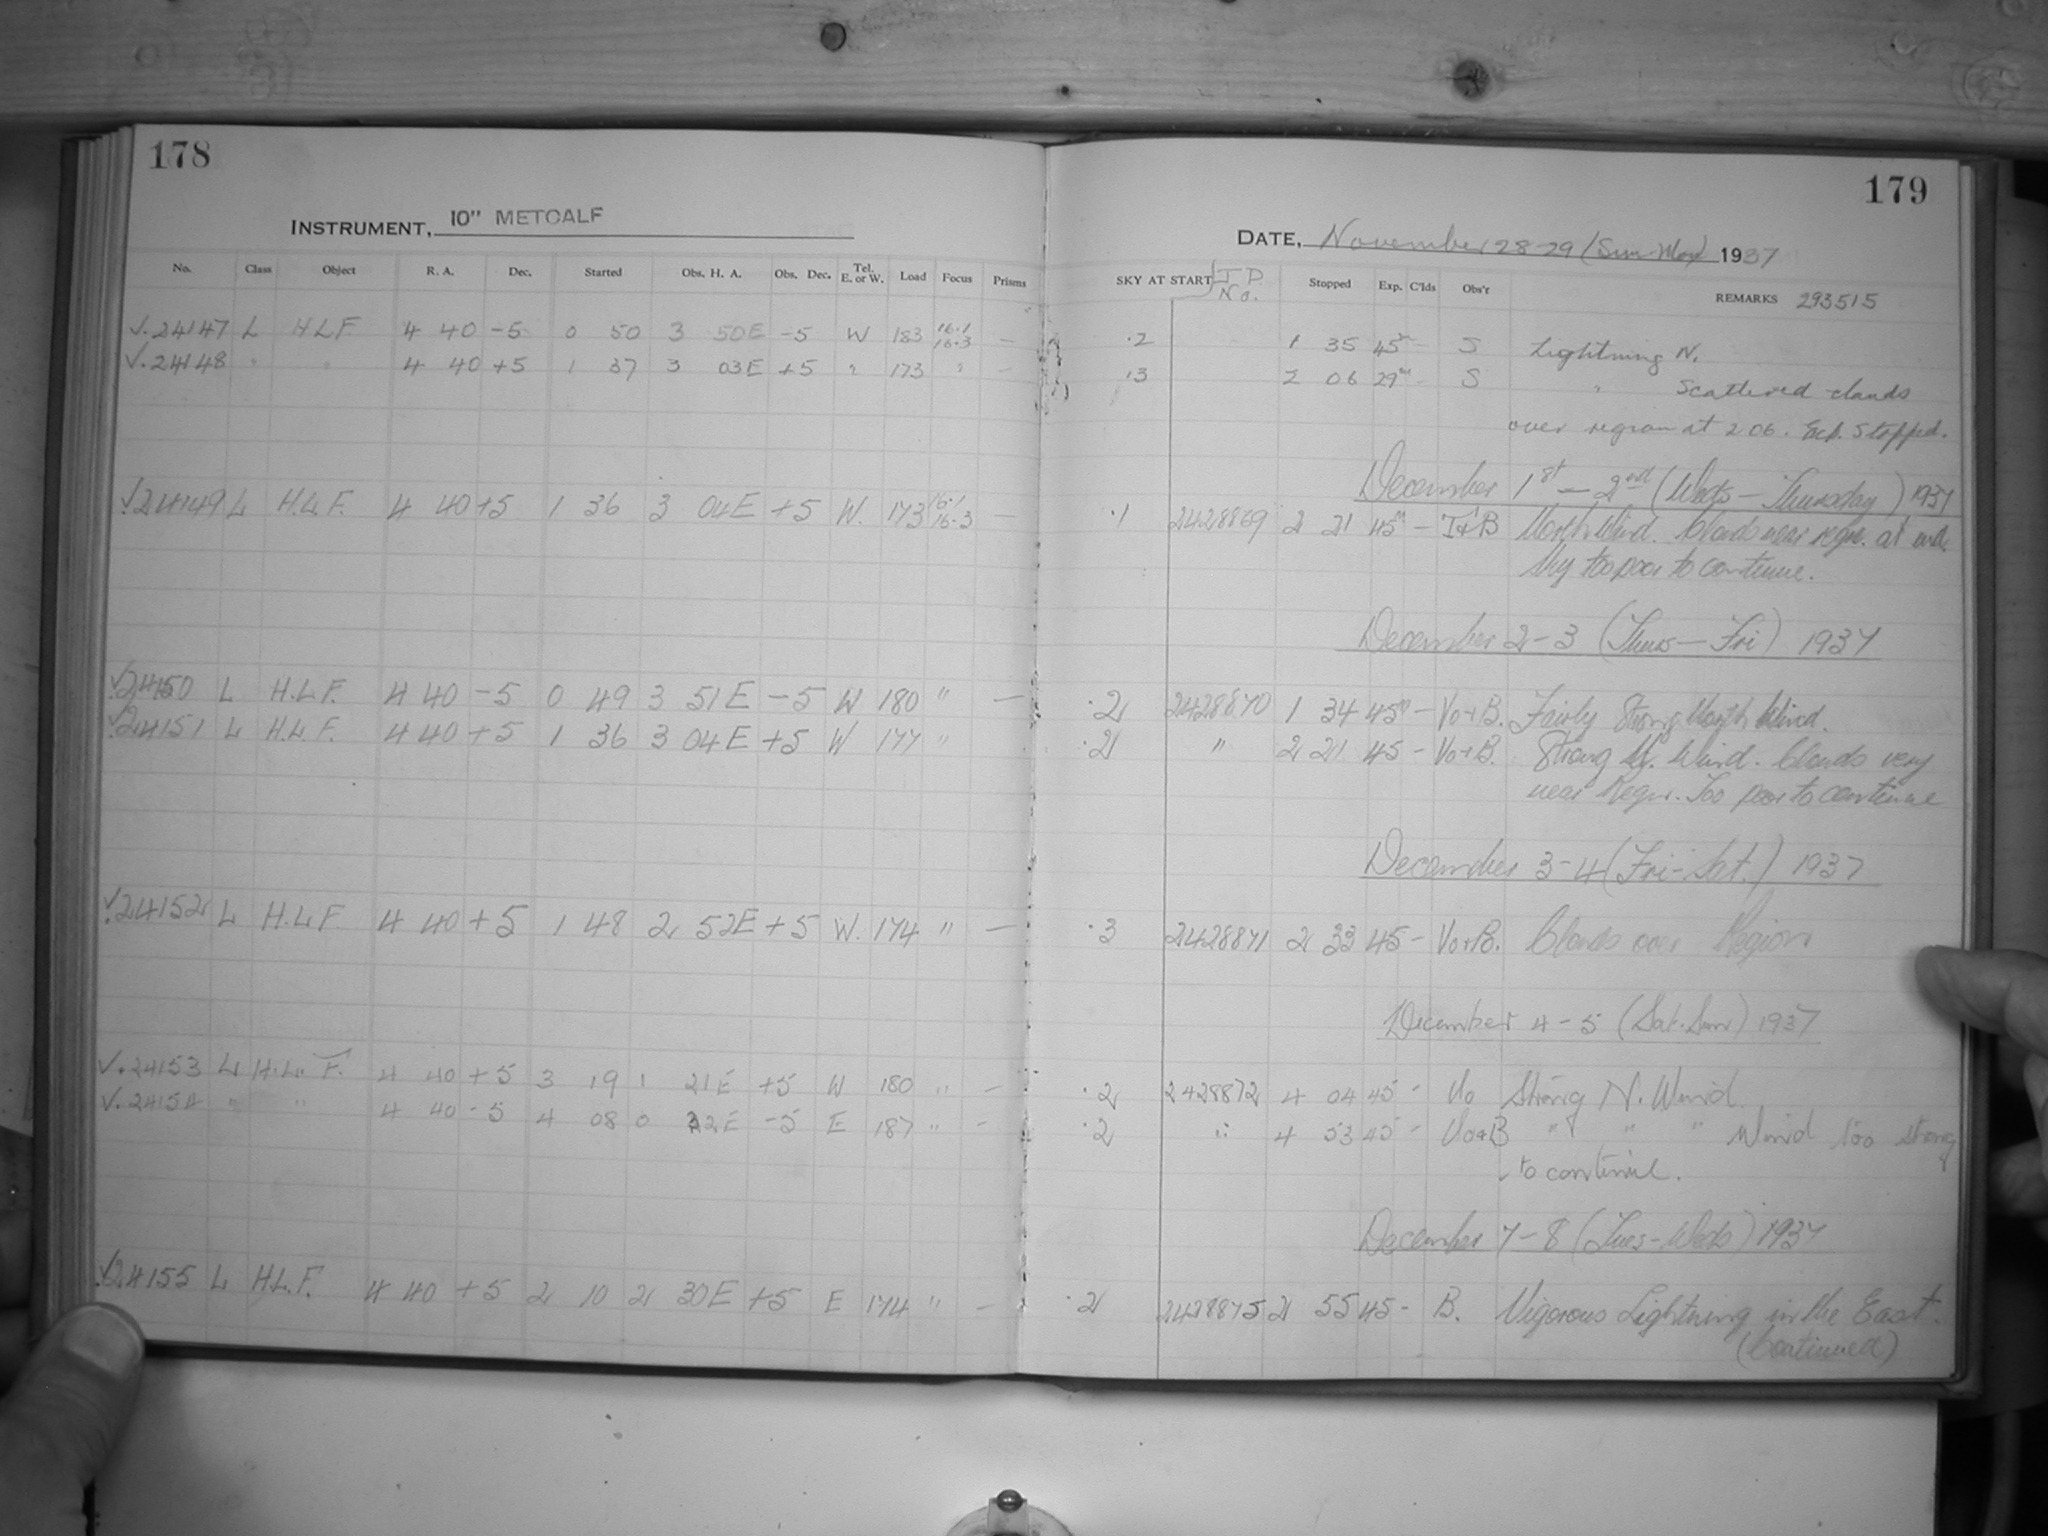 178
INSTRUMENT, 10" METCALF
No. Class Object R. A. Dec. Started Obs. H. A. Obs. Dec. Tel. E. or W. Load Focus Prisms
√.24147 L H L F 4 40 -5 0 50 3 50E -5 W 183 16.1 16.3 —
√.24148 " " 4 40 +5 1 37 3 03E +5 " 173 " —
√24149 L H.L.F. 4 40 +5 1 36 3 04E +5 W. 173 16.1 16.3 —
√24150 L H.L.F. 4 40 -5 0 49 3 51E -5 W 180 " —
√24151 L H.L.F. 4 40 +5 1 36 3 04E +5 W 177 "
√24152 L H.L.F. 4 40 +5 1 48 2 52E +5 W. 174 " —
√.24153 L H.L.F. 4 40 +5 3 19 1 21E +5 W 180 " —
√.24154 " " 4 40 -5 4 08 0 32E -5 E 187 " —
√24155 L H.L.F. 4 40 +5 2 10 2 30E +5 E 174 " —
179
DATE, November 28-29 (Sun-Mon) 1937
SKY AT START J. D. No. Stopped Exp. C'lds Obs'r REMARKS 293515
.2 1 35 45m - S Lightning N.
.3 2 06 29m - S " Scattered clouds
over region at 2 06. Exp. Stopped.
December 1st - 2nd (Weds - Thursday) 1937
.1 2428869 2 21 45m - T+B North Wind. Clouds near region. at end.
Sky too poor to continue.
December 2-3 (Thurs - Fri) 1937
.2 2428870 1 34 45m - Vo+B. Fairly Strong North Wind.
.2 " 2 21 45 - Vo+B. Strong N. Wind. Clouds very
near Region. Too poor to continue
December 3-4 (Fri-Sat.) 1937
.3 2428871 2 33 45 - Vo+B. Clouds over Region
December 4-5 (Sat-Sun) 1937
.2 2428872 4 04 45 - Vo Strong N. Wind.
.2 " 4 53 45 - Vo+B " " " Wind too strong
to continue.
December 7-8 (Tues-Weds) 1937
.2 2428875 2 55 45 - B. Vigorous Lightning in the East.
(Continued)